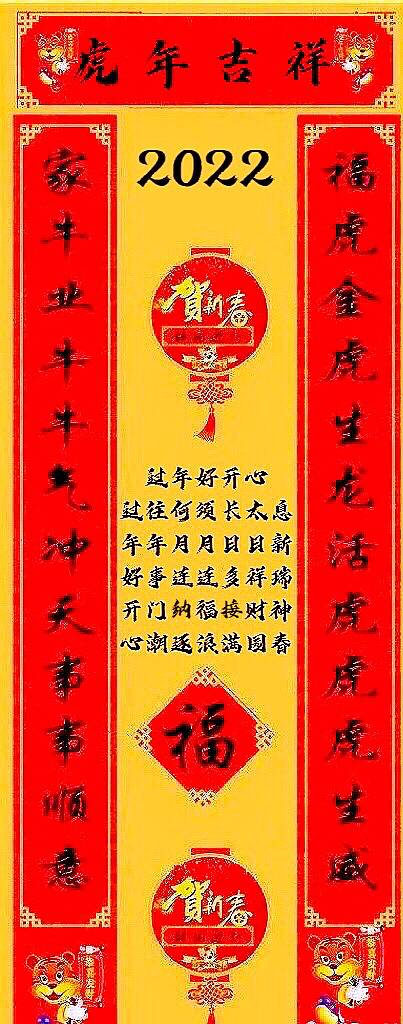 虎年吉祥
福虎金虎生龙活虎虎虎生威
家牛业牛牛气冲天事事顺意
2022
贺新春
过年好开心
过往何须长太息
年年月月日日新
好事连连多祥瑞
开门纳福接财神
心潮逐浪满圆春
福
贺新春
恭喜发财
恭喜发财